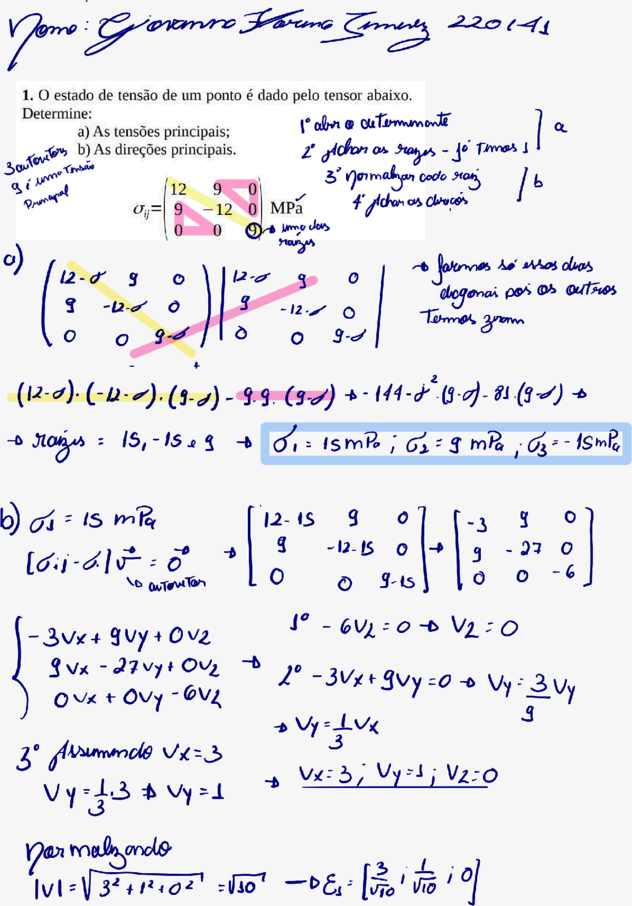 Nome: Giovanna Karina Jimenez 220141
1. O estado de tensão de um ponto é dado pelo tensor abaixo.
Determine:
a) As tensões principais;
b) As direções principais.
1º abrir o determinante
2º Achar as raizes - Já Temos 1
] a
3º normalizar cada raiz
4º Achar as direçoes
] b
3 autovetores
9 é uma Tensão
Principal
σij = ( 12 9 0
9 −12 0
0 0 9 ) MPa
→ uma das
raizes
a)
( 12-σ 9 0 ) | 12-σ 9 0 |
9 -12-σ 0 9 -12-σ 0
0 0 9-σ 0 0 9-σ
- +
→ faremos só essas duas
diagonai pois as outras
Termos zeram
(12-σ)·(-12-σ)·(9-σ) - 9·9·(9-σ) → -144-σ²·(9-σ)-81·(9-σ) →
→ raizes = 15, -15 e 9 → σ1 = 15 mPa ; σ2 = 9 mPa ; σ3 = -15 mPa
b) σ1 = 15 mPa
[σij - σ·]v = 0
↳ autovetor
→ [ 12-15 9 0 ] → [ -3 9 0 ]
9 -12-15 0 9 -27 0
0 0 9-15 0 0 -6
{ -3Vx + 9Vy + 0Vz
9Vx - 27Vy + 0Vz →
0Vx + 0Vy - 6Vz
1º - 6Vz = 0 → Vz = 0
2º -3Vx + 9Vy = 0 → Vy = 3/9 Vy
→ Vy = 1/3 Vx
3º Assumindo Vx = 3
Vy = 1/3 · 3 → Vy = 1 → Vx = 3 ; Vy = 1 ; Vz = 0
Normalizando
|v| = √3² + 1² + 0² = √10 → E1 = [3/√10 ; 1/√10 ; 0]